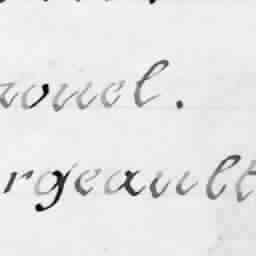 zouel.
rgeault